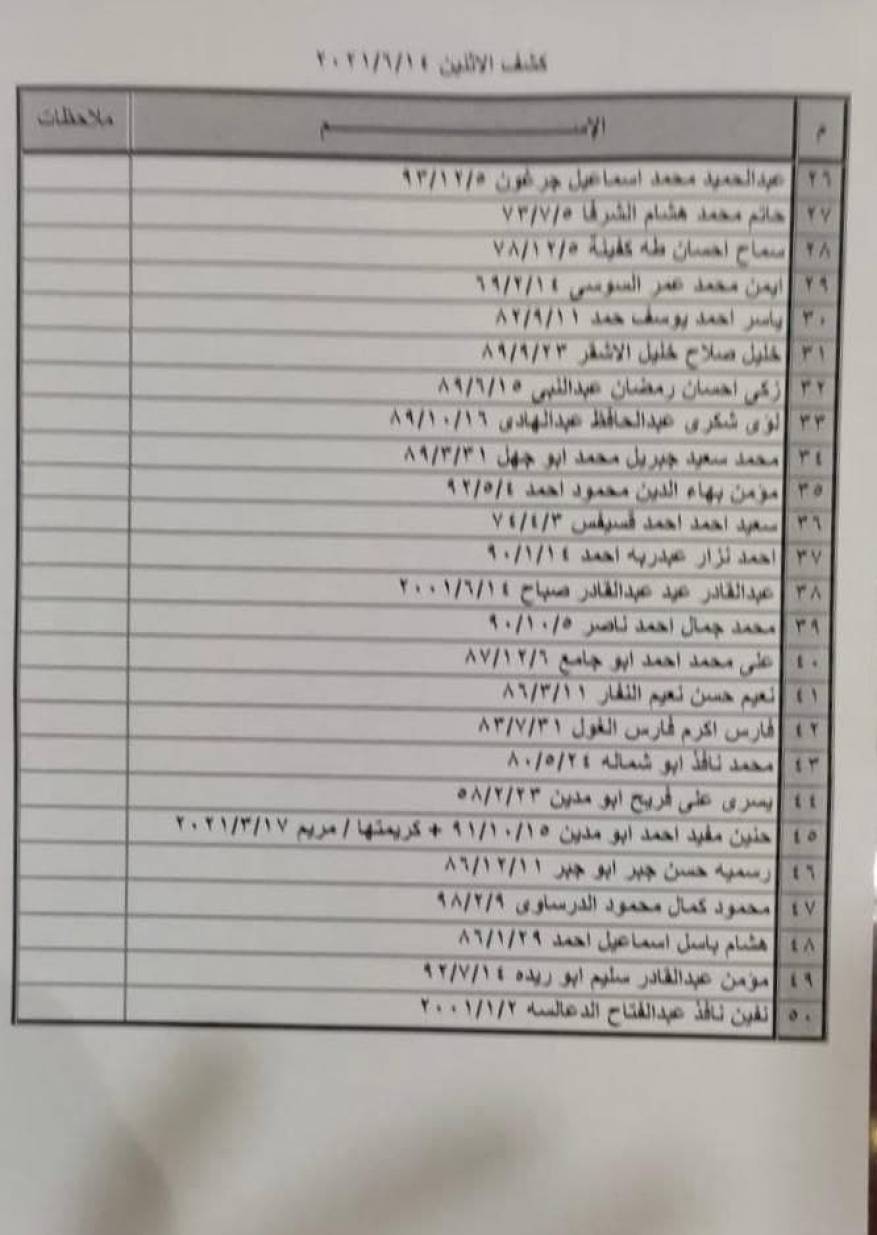 كشف الاثنين ٢٠٢١/٦/١٤
م الاســــــــم ملاحظات
٢٦ عبدالحميد محمد اسماعيل جرغون ٩٣/١٢/٥
٢٧ حاتم محمد هشام الشرفا ٧٣/٧/٥
٢٨ سماح احسان طه كفينة ٧٨/١٢/٥
٢٩ ايمن محمد عمر السوسى ٦٩/٢/١٤
٣٠ ياسر احمد يوسف حمد ٨٢/٩/١١
٣١ خليل صلاح خليل الاشقر ٨٩/٩/٢٣
٣٢ زكى احسان رمضان عبدالنبى ٨٩/٦/١٥
٣٣ لؤى شكرى عبدالحافظ عبدالهادى ٨٩/١٠/١٦
٣٤ محمد سعيد جبريل محمد ابو جهل ٨٩/٣/٣١
٣٥ مؤمن بهاء الدين محمود احمد ٩٢/٥/٤
٣٦ سعيد احمد احمد قسيفس ٧٤/٤/٣
٣٧ احمد نزار عبدربه احمد ٩٠/١/١٤
٣٨ عبدالقادر عيد عبدالقادر صباح ٢٠٠١/٦/١٤
٣٩ محمد جمال احمد ناصر ٩٠/١٠/٥
٤٠ على محمد احمد ابو جامع ٨٧/١٢/٦
٤١ نعيم حسن نعيم النفار ٨٦/٣/١١
٤٢ فارس اكرم فارس الغول ٨٣/٧/٣١
٤٣ محمد نافذ ابو شماله ٨٠/٥/٢٤
٤٤ يسرى على فريح ابو مدين ٥٨/٢/٢٣
٤٥ حنين مفيد احمد ابو مدين ٩١/١٠/١٥ + كريمتها / مريم ٢٠٢١/٣/١٧
٤٦ رسميه حسن جبر ابو جبر ٨٦/١٢/١١
٤٧ محمود كمال محمود الدرساوى ٩٨/٢/٩
٤٨ هشام باسل اسماعيل احمد ٨٦/١/٢٩
٤٩ مؤمن عبدالقادر سليم ابو ريده ٩٢/٧/١٤
٥٠ نفين نافذ عبدالفتاح الدعالسه ٢٠٠١/١/٢